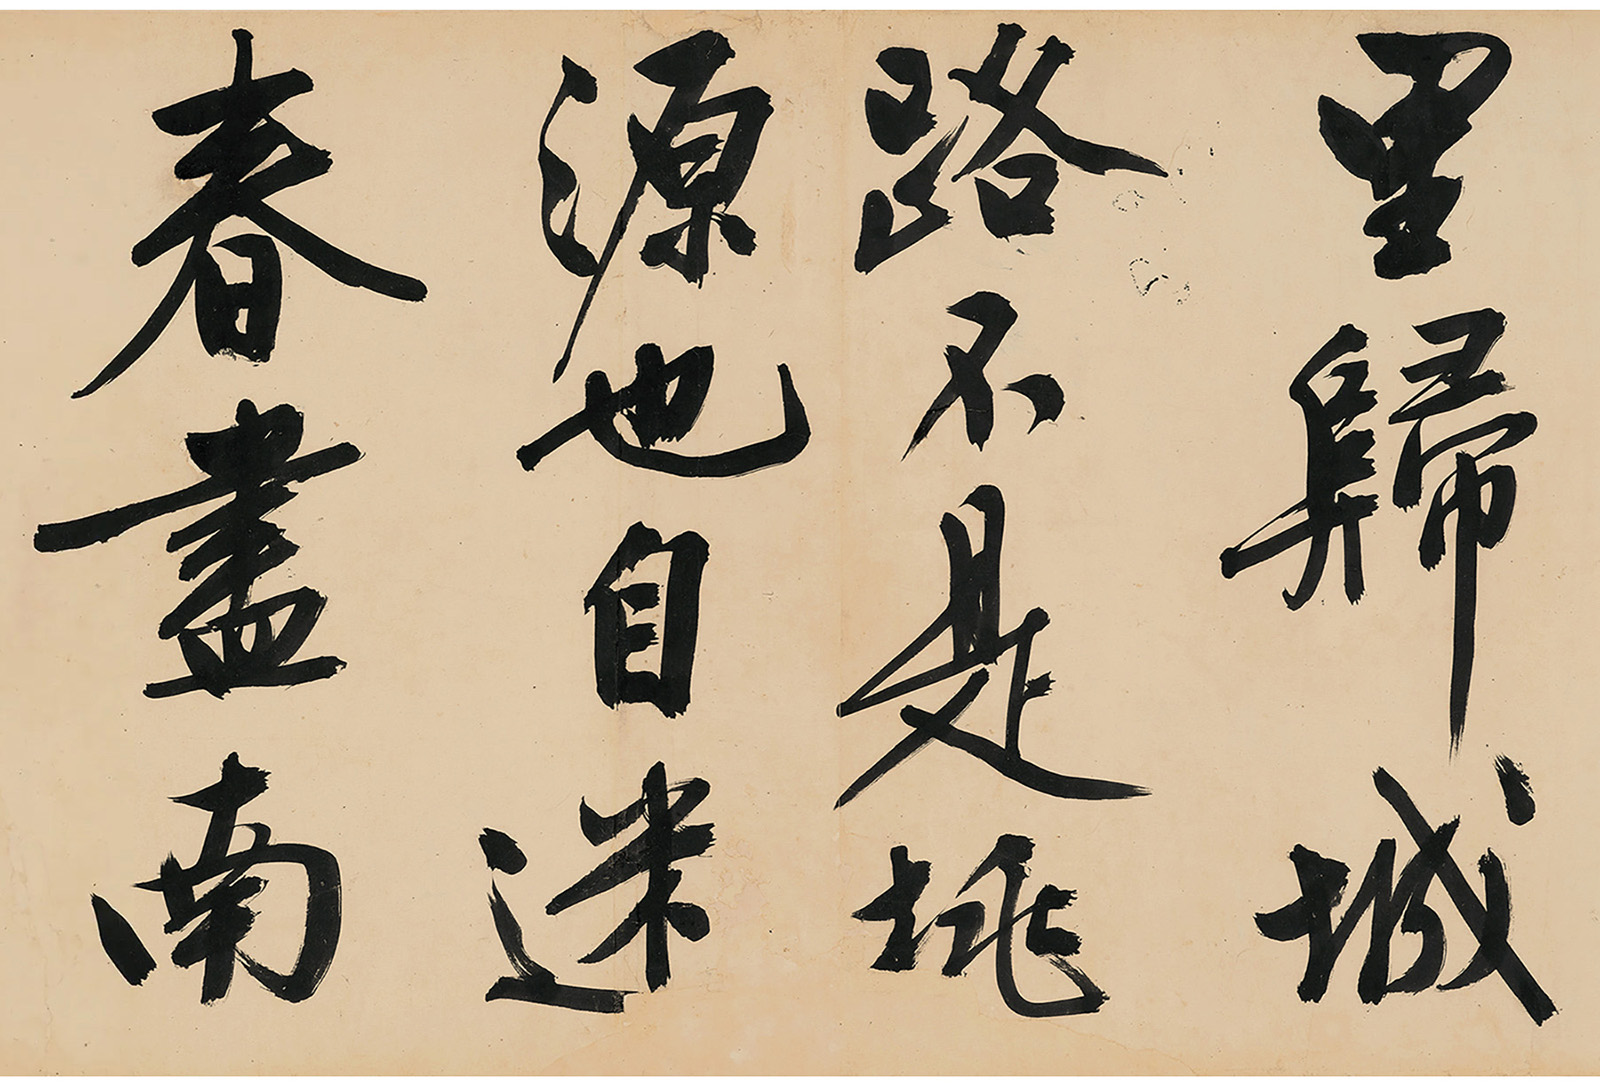 里歸城
路不是桃
源也自迷
春盡南